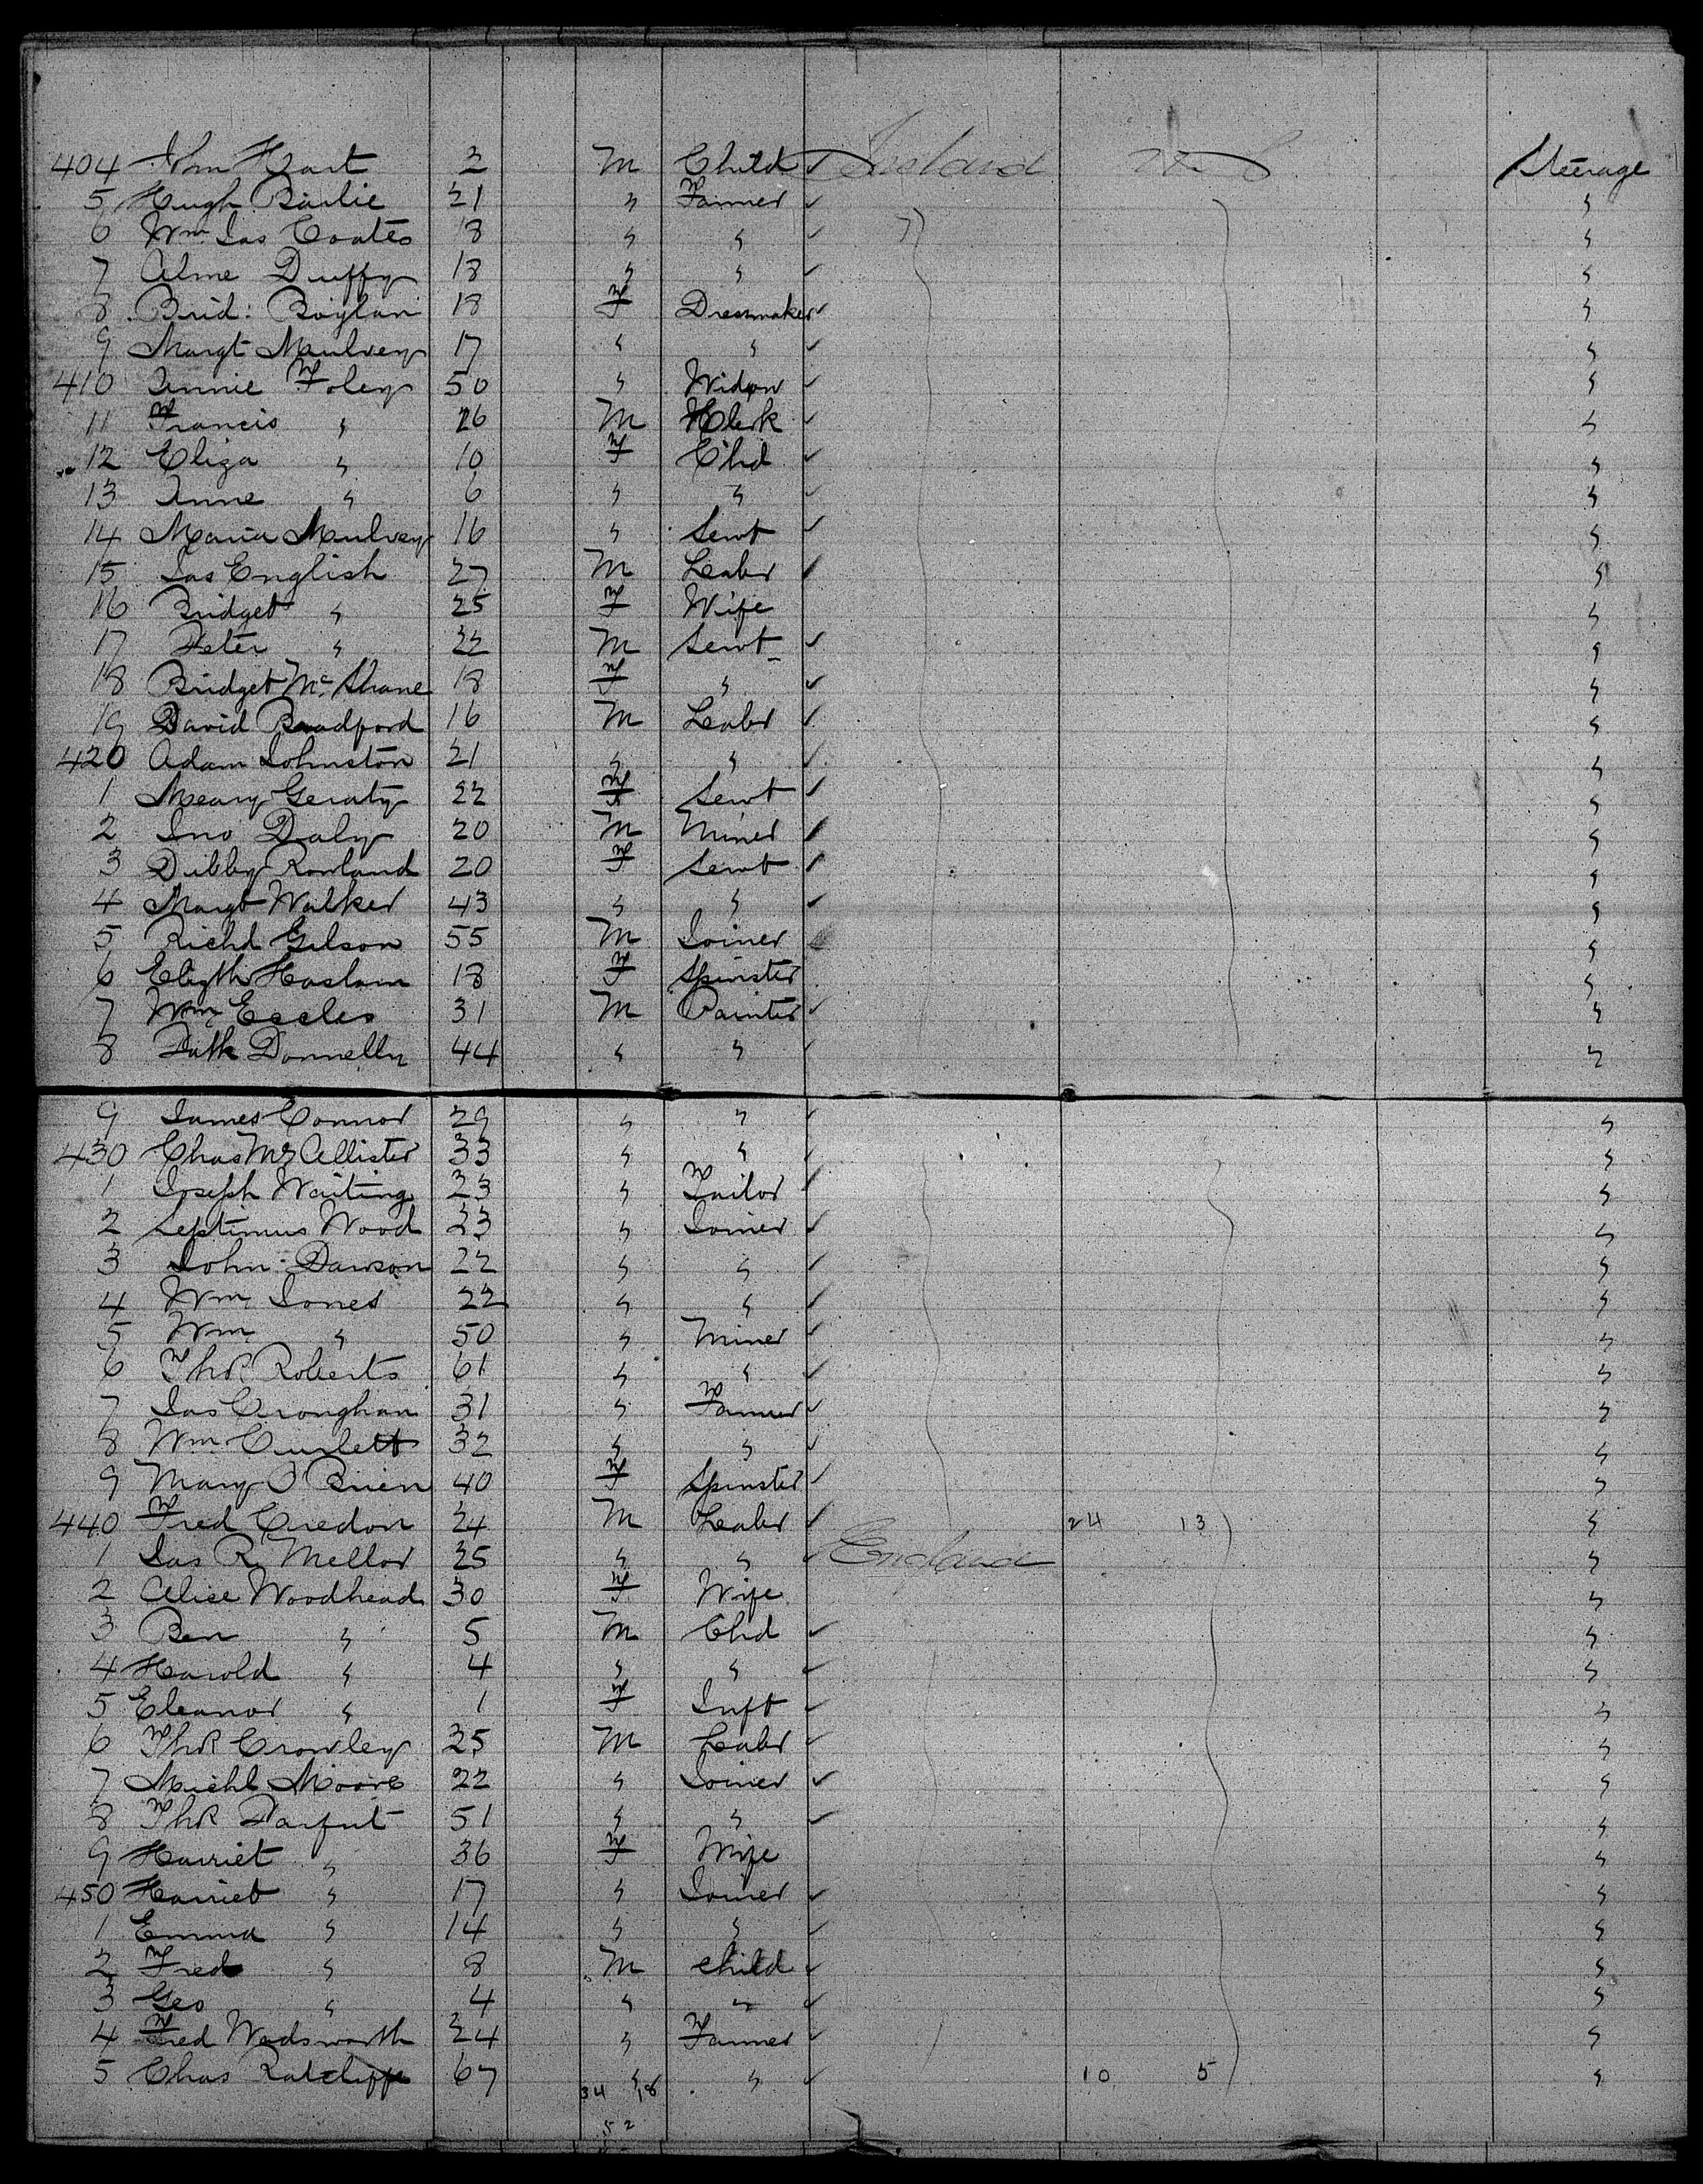 404 John Hart 2 M Child ✓ Ireland U S Steerage
5 Hugh Bailie 21 " Farmer ✓ "
6 Wm Jas Coates 18 " " ✓ "
7 Alme Duffy 18 " " ✓ "
8 Brid: Boylan 18 F Dressmaker ✓ "
9 Margt Mulvey 17 " " ✓ "
410 Annie Foley 50 " Widow ✓ "
11 Francis " 26 M Clerk ✓ "
12 Eliza " 10 F Chd ✓ "
13 Anne " 6 " " ✓ "
14 Maria Mulvey 16 " Servt ✓ "
15 Jas English 27 M Labr ✓ "
16 Bridget " 25 F Wife "
17 Peter " 22 M Servt ✓ "
18 Bridget Mc Shane 18 F " ✓ "
19 David Bradford 16 M Labr ✓ "
420 Adam Johnston 21 " " ✓ "
1 Meary Geraty 22 F Servt ✓ "
2 Jno Daly 20 M Miner ✓ "
3 Dibby Rowland 20 F Servt ✓ "
4 Margt Walker 43 " " ✓ "
5 Richd Gilson 55 M Joiner "
6 Elizth Haslam 18 F Spinster "
7 Wm Eccles 31 M Painter ✓ "
8 Patk Donnelly 44 " " ✓ "
9 James Connor 29 " " ✓ "
430 Chas Mc Allister 33 " " ✓ "
1 Joseph Waiting 23 " Tailor ✓ "
2 Septimus Wood 23 " Joiner ✓ "
3 John Dawson 22 " " ✓ "
4 Wm Jones 22 " " ✓ "
5 Wm " 50 " Miner ✓ "
6 Thos Roberts 61 " " ✓ "
7 Jas Cronghan 31 " Farmer ✓ "
8 Wm Curlett 32 " " ✓ "
9 Mary O'Brien 40 F Spinster ✓ "
440 Fred Credon 24 M Labr ✓ 24 13 "
1 Jas R Mellor 25 " " ✓ England "
2 Alice Woodhead 30 F Wife "
3 Ben " 5 M Chd ✓ "
4 Harold " 4 " " ✓ "
5 Eleanor " 1 F Inft ✓ "
6 Thos Crowley 25 M Labr ✓ "
7 Michl Moore 22 " Joiner ✓ "
8 Thos Parfut 51 " " ✓ "
9 Harriet " 36 F Wife "
450 Harriet " 17 " Joiner ✓ "
1 Emma " 14 " " ✓ "
2 Fred " 8 M child ✓ "
3 Geo " 4 " " ✓ "
4 Fred Wadsworth 24 " Farmer ✓ "
5 Chas Ratcliffe 67 " " ✓ 10 5 "
34 18
52